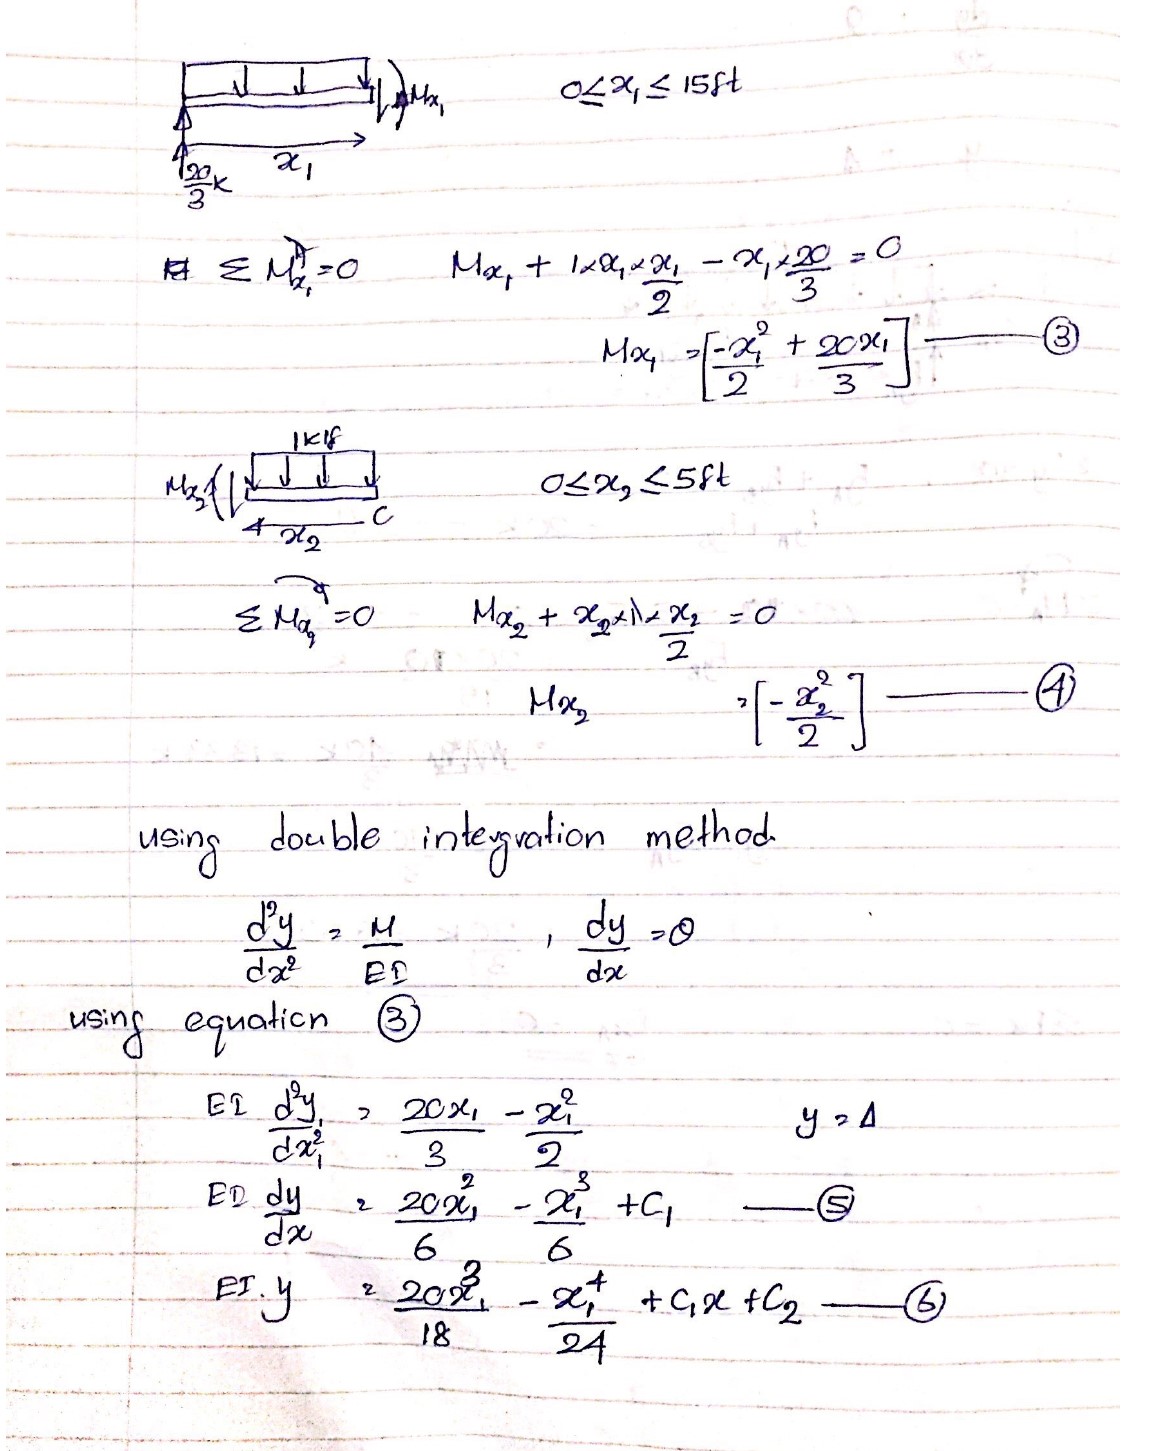 0 ≤ x₁ ≤ 15ft
Mx₁
x₁
20/3 K
Σ Mx₁ = 0    Mx₁ + 1×x₁×x₁/2 − x₁×20/3 = 0
Mx₁ = [−x₁²/2 + 20x₁/3] —— ③
1klf
Mx₂    0 ≤ x₂ ≤ 5ft
C
x₂
Σ Mx₂ = 0    Mx₂ + x₂×1×x₂/2 = 0
Mx₂ = [−x₂²/2] —— ④
using double intergration method
d²y/dx² = M/EI , dy/dx = θ
using equation ③
EI d²y₁/dx₁² = 20x₁/3 − x₁²/2    y = Δ
EI dy/dx = 20x₁²/6 − x₁³/6 + C₁ —— ⑤
EI.y = 20x₁³/18 − x₁⁴/24 + C₁x + C₂ —— ⑥